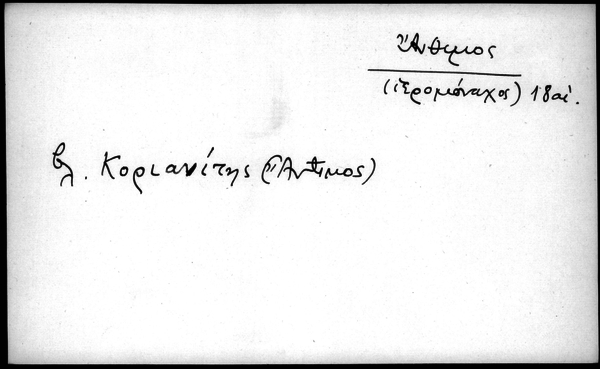 Ἄνθιμος
(ἱερομόναχος) 18 αἰ.
βλ. Κοριανίτης (Ἄνθιμος)